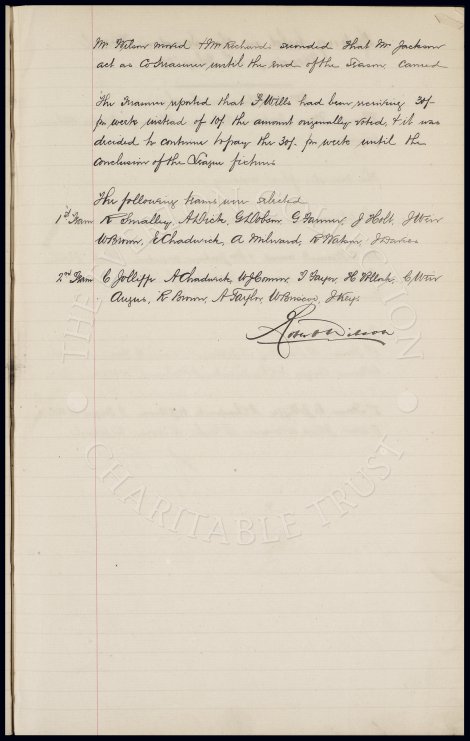 Mr Wilson moved & Mr Richards seconded that Mr Jackson
act as Co Treasurer until the end of the Season Carried
The Treasurer reported that F Wills had been receiving 30/-
per week instead of 10/- the amount originally voted, & it was
decided to continue to pay the 30/- per week until the
conclusion of the League fixtures
The following teams were selected
1st Team R Smalley, A Dick, G Dobson, G Farmer, J Holt, J Weir
W Brown, E Chadwick, A Milward, R Watson, J Davies
2nd Team C Jolliffe A Chadwick, W J Connor, H Pollock, C Weir
Angus, R Brown, A Taylor, W Briscoe, J Keys
THE CHARITABLE TRUST